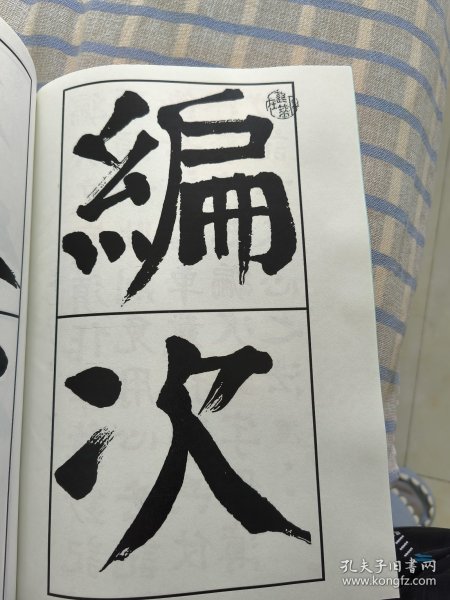 編
次
孔夫子旧书网
www.kongfz.com